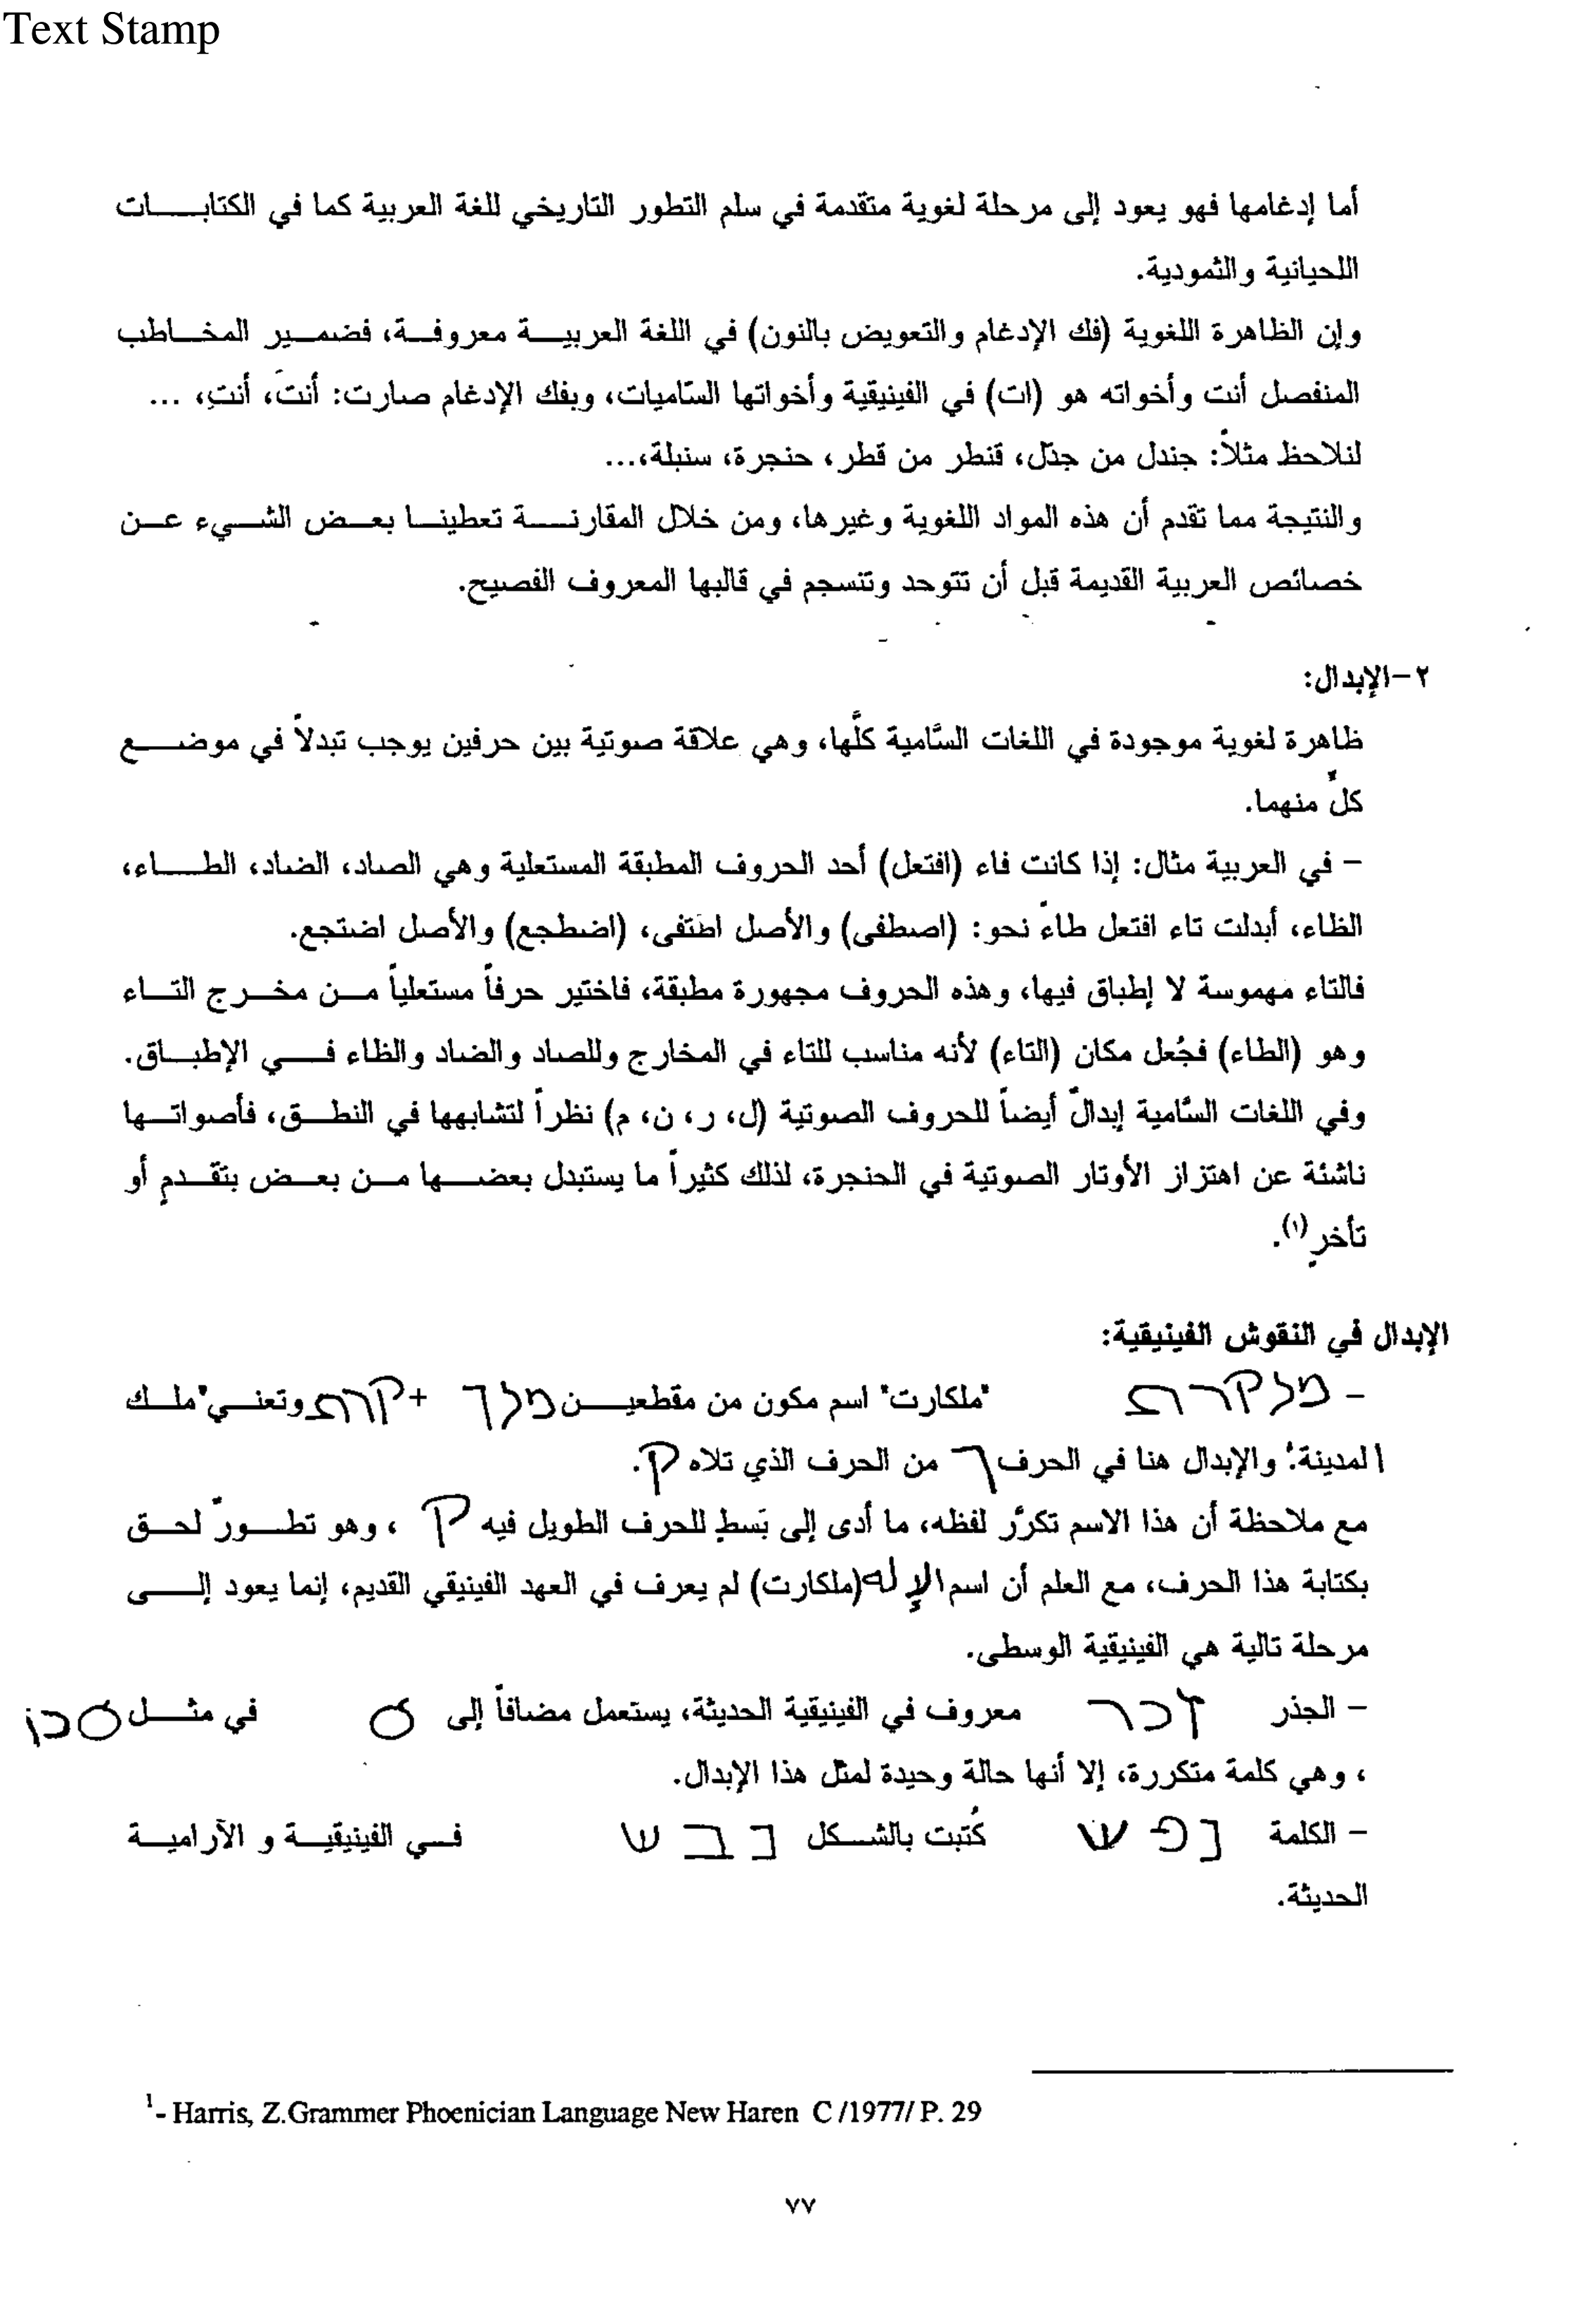 Text Stamp
أما إدغامها فهو يعود إلى مرحلة لغوية متقدمة في سلم التطور التاريخي للغة العربية كما في الكتابات
اللحيانية والثمودية.
وإن الظاهرة اللغوية (فك الإدغام والتعويض بالنون) في اللغة العربية معروفة، فضمير المخاطب
المنفصل أنت وأخواته هو (ات) في الفينيقية وأخواتها السّاميات، وبفك الإدغام صارت: أنتَ، أنتِ، ...
لنلاحظ مثلاً: جندل من جدّل، قنطر من قطر، حنجرة، سنبلة،...
والنتيجة مما تقدم أن هذه المواد اللغوية وغيرها، ومن خلال المقارنة تعطينا بعض الشيء عن
خصائص العربية القديمة قبل أن تتوحد وتنسجم في قالبها المعروف الفصيح.
٢-الإبدال:
ظاهرة لغوية موجودة في اللغات السّامية كلّها، وهي علاقة صوتية بين حرفين يوجب تبدلاً في موضع
كلّ منهما.
- في العربية مثال: إذا كانت فاء (افتعل) أحد الحروف المطبقة المستعلية وهي الصاد، الضاد، الطاء،
الظاء، أبدلت تاء افتعل طاءً نحو: (اصطفى) والأصل اصتفى، (اضطجع) والأصل اضتجع.
فالتاء مهموسة لا إطباق فيها، وهذه الحروف مجهورة مطبقة، فاختير حرفاً مستعلياً من مخرج التاء
وهو (الطاء) فجُعل مكان (التاء) لأنه مناسب للتاء في المخارج وللصاد والضاد والظاء في الإطباق.
وفي اللغات السّامية إبدالٌ أيضاً للحروف الصوتية (ل، ر، ن، م) نظراً لتشابهها في النطق، فأصواتها
ناشئة عن اهتزاز الأوتار الصوتية في الحنجرة، لذلك كثيراً ما يستبدل بعضها من بعض بتقدمٍ أو
تأخرٍ(١).
الإبدال في النقوش الفينيقية:
- "ملكارت" اسم مكون من مقطعين + وتعني"ملك
المدينة". والإبدال هنا في الحرف من الحرف الذي تلاه .
مع ملاحظة أن هذا الاسم تكرّر لفظه، ما أدى إلى بَسطٍ للحرف الطويل فيه ، وهو تطورٌ لحق
بكتابة هذا الحرف، مع العلم أن اسم الإله(ملكارت) لم يعرف في العهد الفينيقي القديم، إنما يعود إلى
مرحلة تالية هي الفينيقية الوسطى.
- الجذر معروف في الفينيقية الحديثة، يستعمل مضافاً إلى في مثل
، وهي كلمة متكررة، إلا أنها حالة وحيدة لمثل هذا الإبدال.
- الكلمة כُتبت بالشكل في الفينيقية و الآرامية
الحديثة.
¹- Harris, Z.Grammer Phoenician Language New Haren C /1977/ P. 29
٧٧